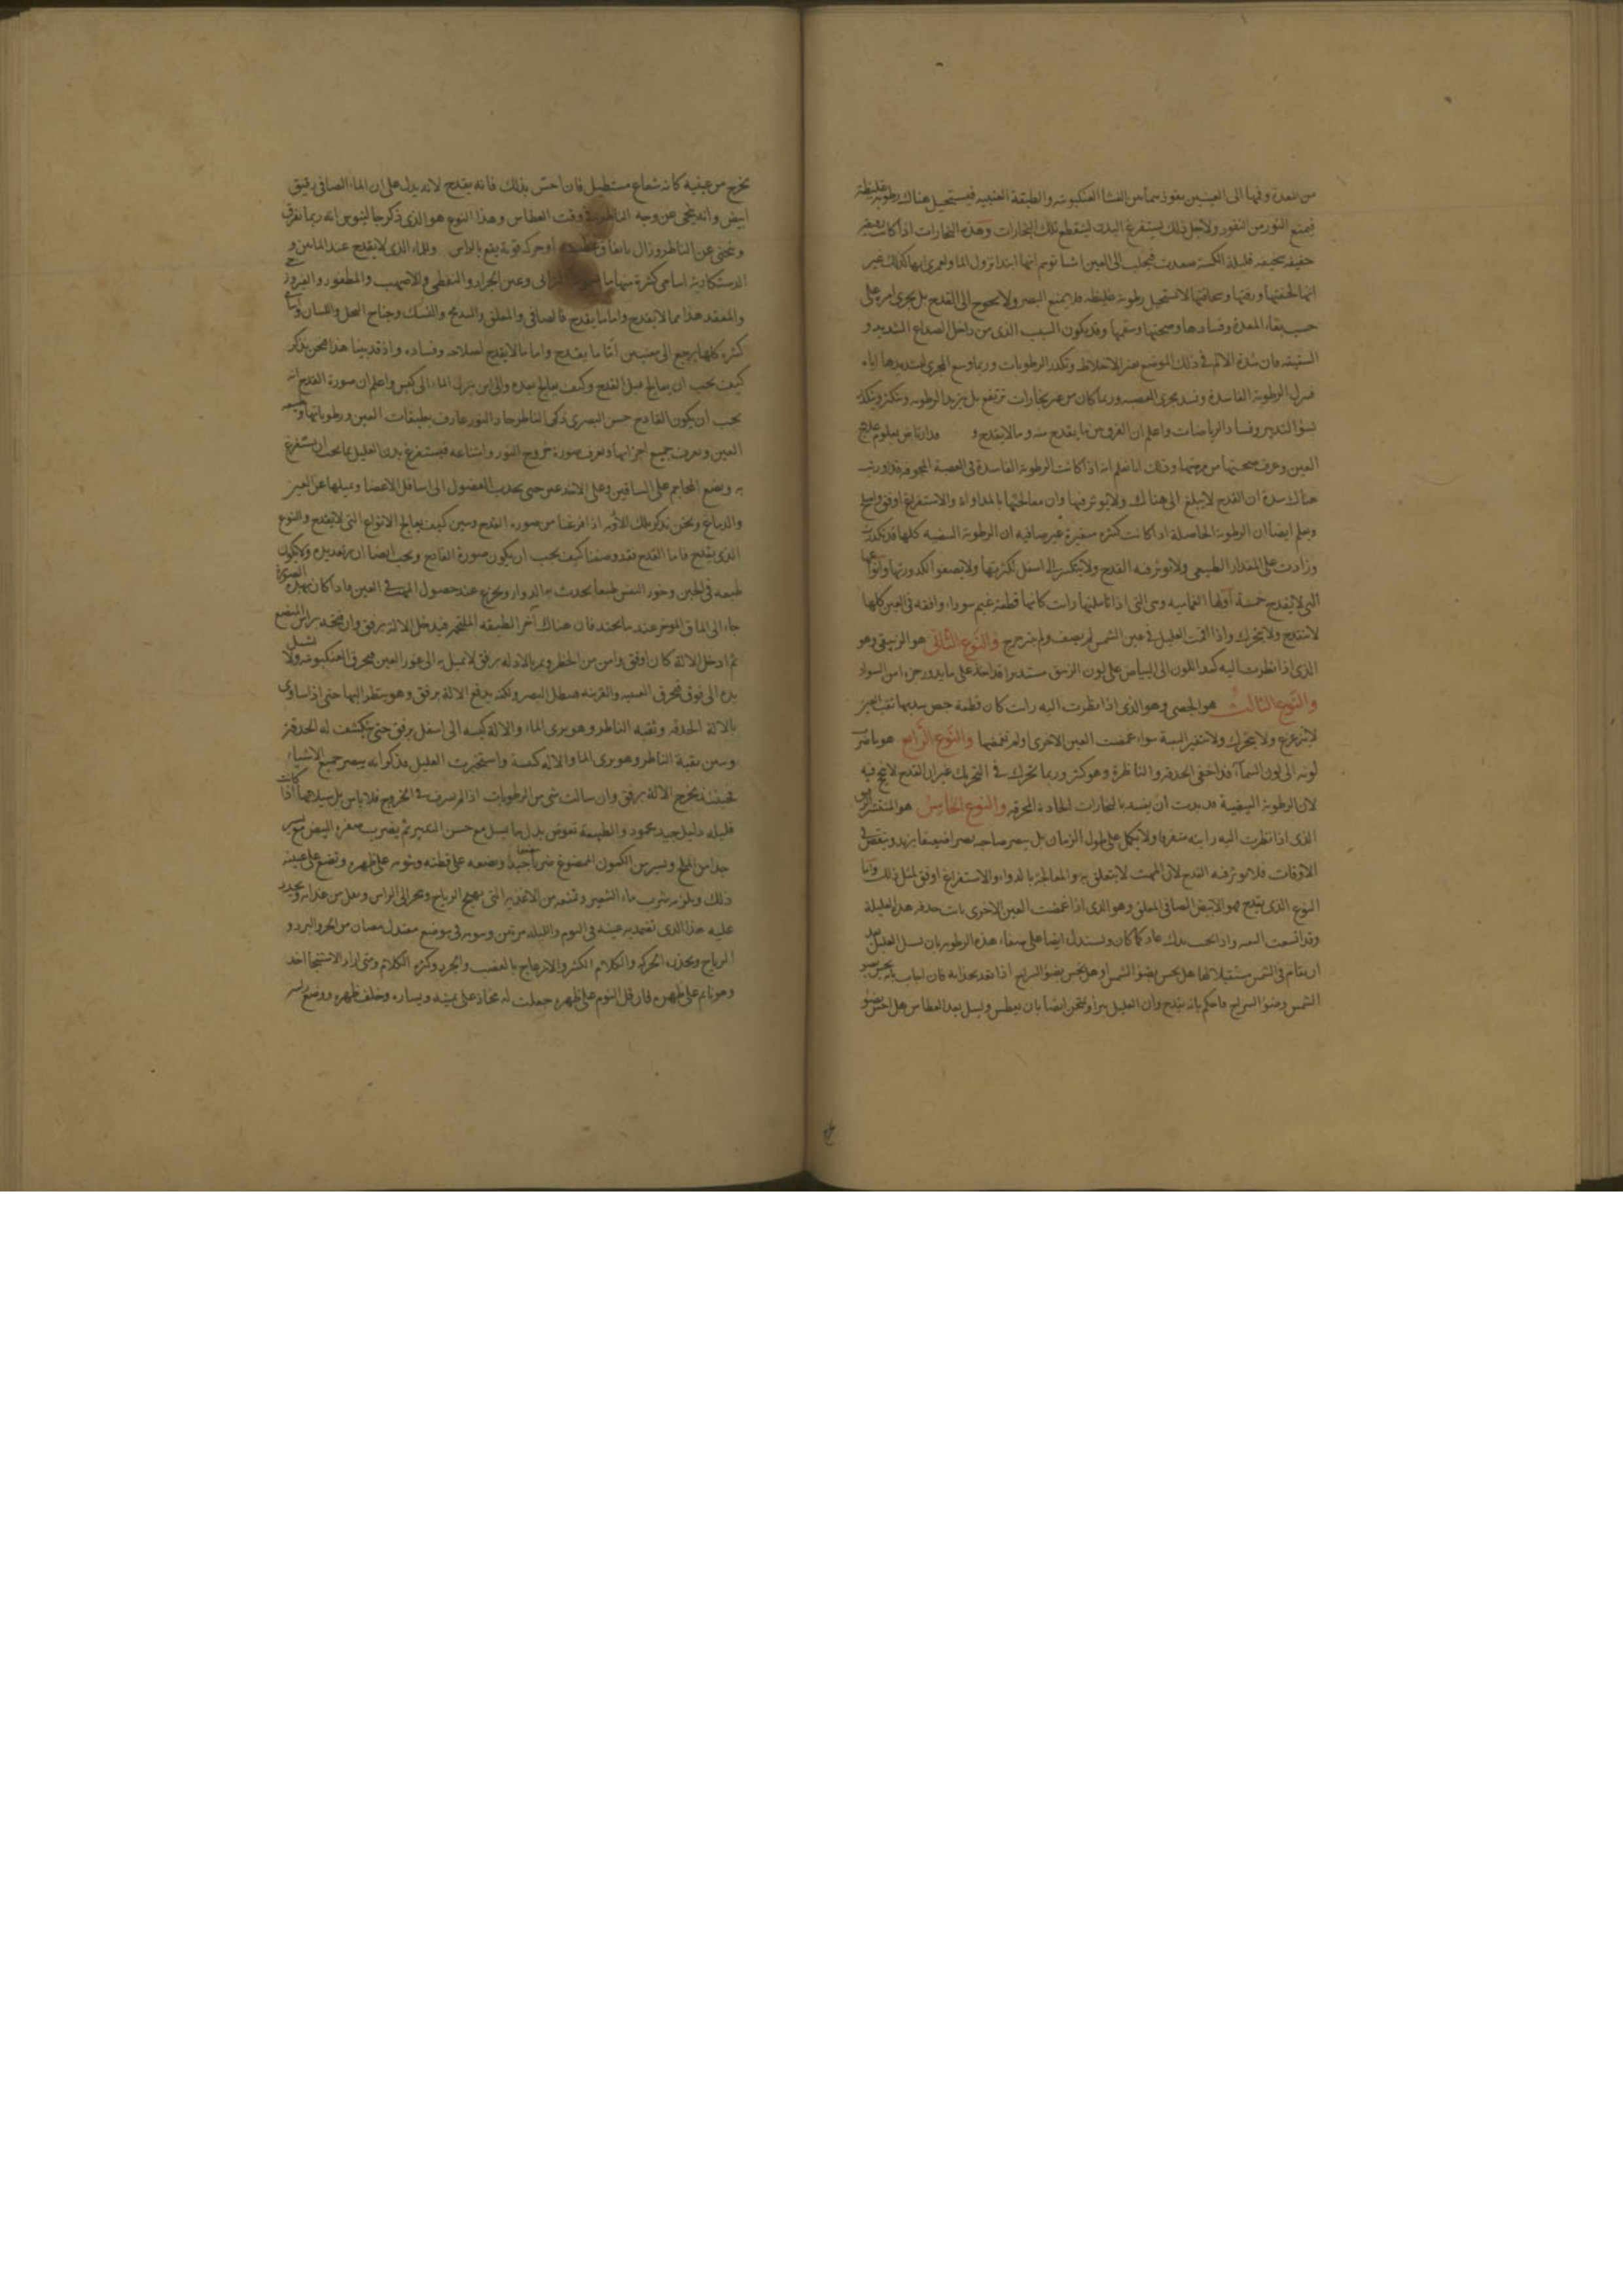 من المعدة وفمها الى العينين ينفوذ بما من الغشا العنكبوتيه والطبقة العنبيه فيستحيل هناك رطوبة غليظة
فيمنع النور من النفوذ ولاجل ذلك يستفرغ البدن لينقطع تلك البخارات وهذه البخارات اذا كانت
خفيفه قليلة الكميه صعدت الى العين اشيا توهم انها ابتدا نزول الما
انها لخفتها ورقتها وسخافتها لا تستحيل رطوبة غليظه فلا يمنع البصر ولا يحوج الى القدح بل يجرى امره على
حسب نقاء المعدة وفسادها وصحتها وسقمها وقد يكون السبب الذى من داخل الصداع الشديد و
الشقيقه فان شدة الالم فى ذلك الموضع الاخلاط وتكدر الرطوبات وربما وسع المجرى لتمديدها اياه
فينزل الرطوبة الفاسدة وفسد مجرى العصبه وربما كان من بخارات ترتفع بل يزيد الرطوبه وتكثر وتكدر
بسؤ التدبير وفساد الرياضات واعلم ان الفرق بين ما يقدح منه وما لا يقدح و
العين وعرف صحتها من مرضها وذلك انا نعلم انه اذا كانت الرطوبة الفاسدة فى العصبة المجوفه قد اورثت
هناك سدة ان القدح لا يبلغ الى هناك ولا يوثر فيها وان معالجتها بالمداواة والاستفراغ اوفق
ويعلم ايضا ان الرطوبة الحاصلة اذا كانت كثيره متغيرة غير صافيه ان الرطوبة البيضيه كلها قد تكدرت
وزادت على المقدار الطبيعى ولا يوثر فيه القدح ولا يتكبس الى اسفل لكثرتها ولا يصفو الكدورتها وانواعها
التى لا يقدح خمسة اولها الغماميه وهى التى اذا تاملتها رايت كانها قطعة غيم سوداء واقفه فى العين كلها
لا تنقدح ولا يتحرك واذا اقمت العليل فى عين الشمس لم يصف ولم يترجرج والنوع الثانى هو الزيبقى وهو
الذى اذا نظرت اليه كمد اللون الى البياض على لون الزيبق مستديرا قد اخذ على ما يدور جزءا من السواد
والنوع الثالث هو الجصى وهو الذى اذا نظرت اليه رايت كان قطعة جص سد بها ثقب العين
لا يتزعزع ولا يتحرك ولا يتغير البتة سواء غمضت العين الاخرى او لم تغمضها والنوع الرابع هو ما ضرب
لونه الى لون السماء قد اخفى الحدقة والناظرة وهو كدر وربما تحرك فى التحريك غير ان القدح لا ينجح فيه
لان الرطوبة البيضية قد بدت ان يفسد بالبخارات الحادة المحرقه والنوع الخامس هو المنتشر
الذى اذا نظرت اليه رايته متفرقا ولا يكمل على طول الزمان بل يبصر صاحبه بصرا ضعيفا يزيد وينقص فى
الاوقات فلا يوثر فيه القدح لان المهت لا يتعلق به والمعالجة بالدواء والاستفراغ اوفق لمثل ذلك واما
النوع الذى يقدح فهو الابيض الصافى المعلق وهو الذى اذا غمضت العين الاخرى حدقة هذه العليلة
وقد اتسعت عاد كما كان ويستدل ايضا على صفاء هذه الرطوبه بان يسل العليل
ان يقام فى الشمس مستقبلا لها هل يحس بضوء الشمس او هل يحس بضوء السراج اذا قعد بحذايه فان اجاب بانه يحس بضو
الشمس وضوء السراج فاحكم بانه يقدح وان العليل يبرا ويمتحن ايضا بان يعطس ويسل بعد العطاس هل احس بضو
يخرج من عينيه كانه شعاع مستطيل فان احس بذلك فانه يقدح لانه يدل على ان الماء الصافى رقيق
ابيض وانه يتنحى عن وجه الناظر فى وقت العطاس وهذا النوع هو الذى ذكر جالينوس انه ربما تفرق
وتنحى عن الناظر وزال باتفاق او حركة قوية يقع بالراس والماء الذى لا يقدح عند
اسامى كثيرة منها وعين الجراد والنفطى والاصهب
والمعقد هذا مما لا يقدح واما ما يقدح فالصافى والمعلق وجناح النحل واللسان
كثيره كلها يرجع الى معنيين اما ما يقدح واما ما لا يقدح لصلاحه وفساده واذ قد بينا هذا فنحن نذكر
كيف يجب ان يعالج قبل القدح وكيف يعالج بعده والى اين ينزل الماء الى كبس واعلم ان صورة القدح انه
يجب ان يكون القادح حسن البصرى ذكى الناظر حاد النور عارف بطبقات العين ورطوباتها
العين ويعرف جميع اجزايها ويعرف صورة خروج النور وامتناعه فيستفرغ بدن العليل بما يجب ان يستفرغ
به ويضع المحاجم على الساقين وعلى حتى يجذب الفضول الى اسافل الاعضا ويميلها عن العين
والدماغ ونحن نذكر تلك الادوية اذا فرغنا من صورة القدح ونبين كيف يعالج الانواع التى لا يقدح والنوع
الذى يقدح فاما القدح فقد وصفنا كيف يجب ان يكون صورة القادح ويجب ايضا ان يرتعد يده ولا يكون
طبعه فى الجبن وخور النفس طبعا يحدث به الدوار ويجزع عند حصول المهت فى العين فاذا كان بهذه الصورة
جاء الى الماق الموخر عند فان هناك اخر الطبقه الملتحم فيدخل الالة برفق وان فتحه براس المبضع
ثم ادخل الالة كان اوفق وامن من الخطر ويمر بالالة برفق لا تميل به الى غور العين فيخرق العنكبوتيه ولا
يده الى فوق فيخرق العنبيه والقرنيه فيبطل البصر ولكنه يدفع الالة برفق وهو ينظر اليها حتى اذا ساوى
بالالة الحدقه وثقبه الناظر وهو يرى الماء والالة كبسه الى اسفل برفق حتى ينكشف له الحدقة
وثقبة الناظر وهو يرى الماء والالة واستخبرت العليل فذكر انه يبصر جميع الاشياء
فحينئذ يخرج الالة برفق وان سالت شى من الرطوبات اذا لم يسرف فى الخروج فلا باس بل سيلانها اذا كانت
قليله دليل جيد محمود والطبيعة تعوض بدل ما يسيل مع حسن التدبير ثم يضرب صفرة البيض مع يسير
جدا من الملح ويسير من الكمون الممضوغ ضربا جيدا ويضعه على قطنه وينومه على ظهره وتضع على عينه
ذلك ويلزمه شرب ماء الشعير وتمنعه من الاغذيه التى يهيج الرياح وبخر الى الراس ويقلل من غذايه ويجدد
عليه هذا الذى تضمد به عينه فى اليوم والليلة مرتين وينومه فى موضع معتدل مصان من الحر والبرد و
الرياح ويحذره الحركة والكلام الكثير والانزعاج بالغضب والحرد وكثرة الكلام ومتى اراد الاستنجا اخذ
وهو نايم على ظهره فان قل النوم على ظهره جعلت له مخاد على يمينه ويساره وخلف ظهره ووضع راسه